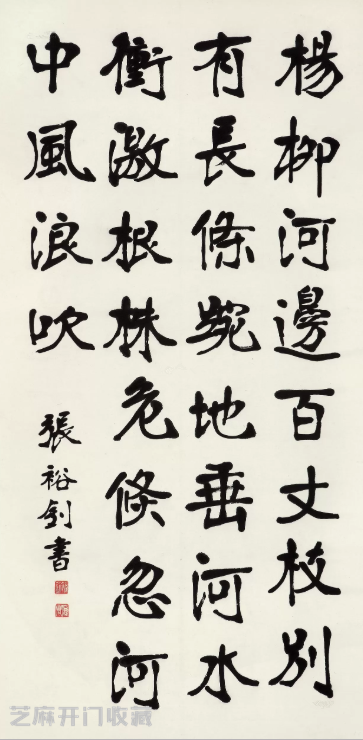 楊柳河邊百丈枝別
有長條踠地垂河水
衝激根株危倏忽河
中風浪吹
張裕釗書
芝麻开门收藏